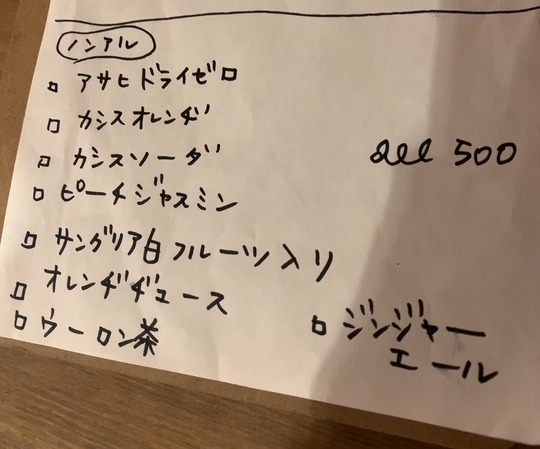 ノンアル
アサヒドライゼロ
カシスオレンヂ
カシスソーダ
all 500
ピーチジャスミン
サングリア白フルーツ入り
オレンヂヂュース
ウーロン茶
ジンジャー
エール